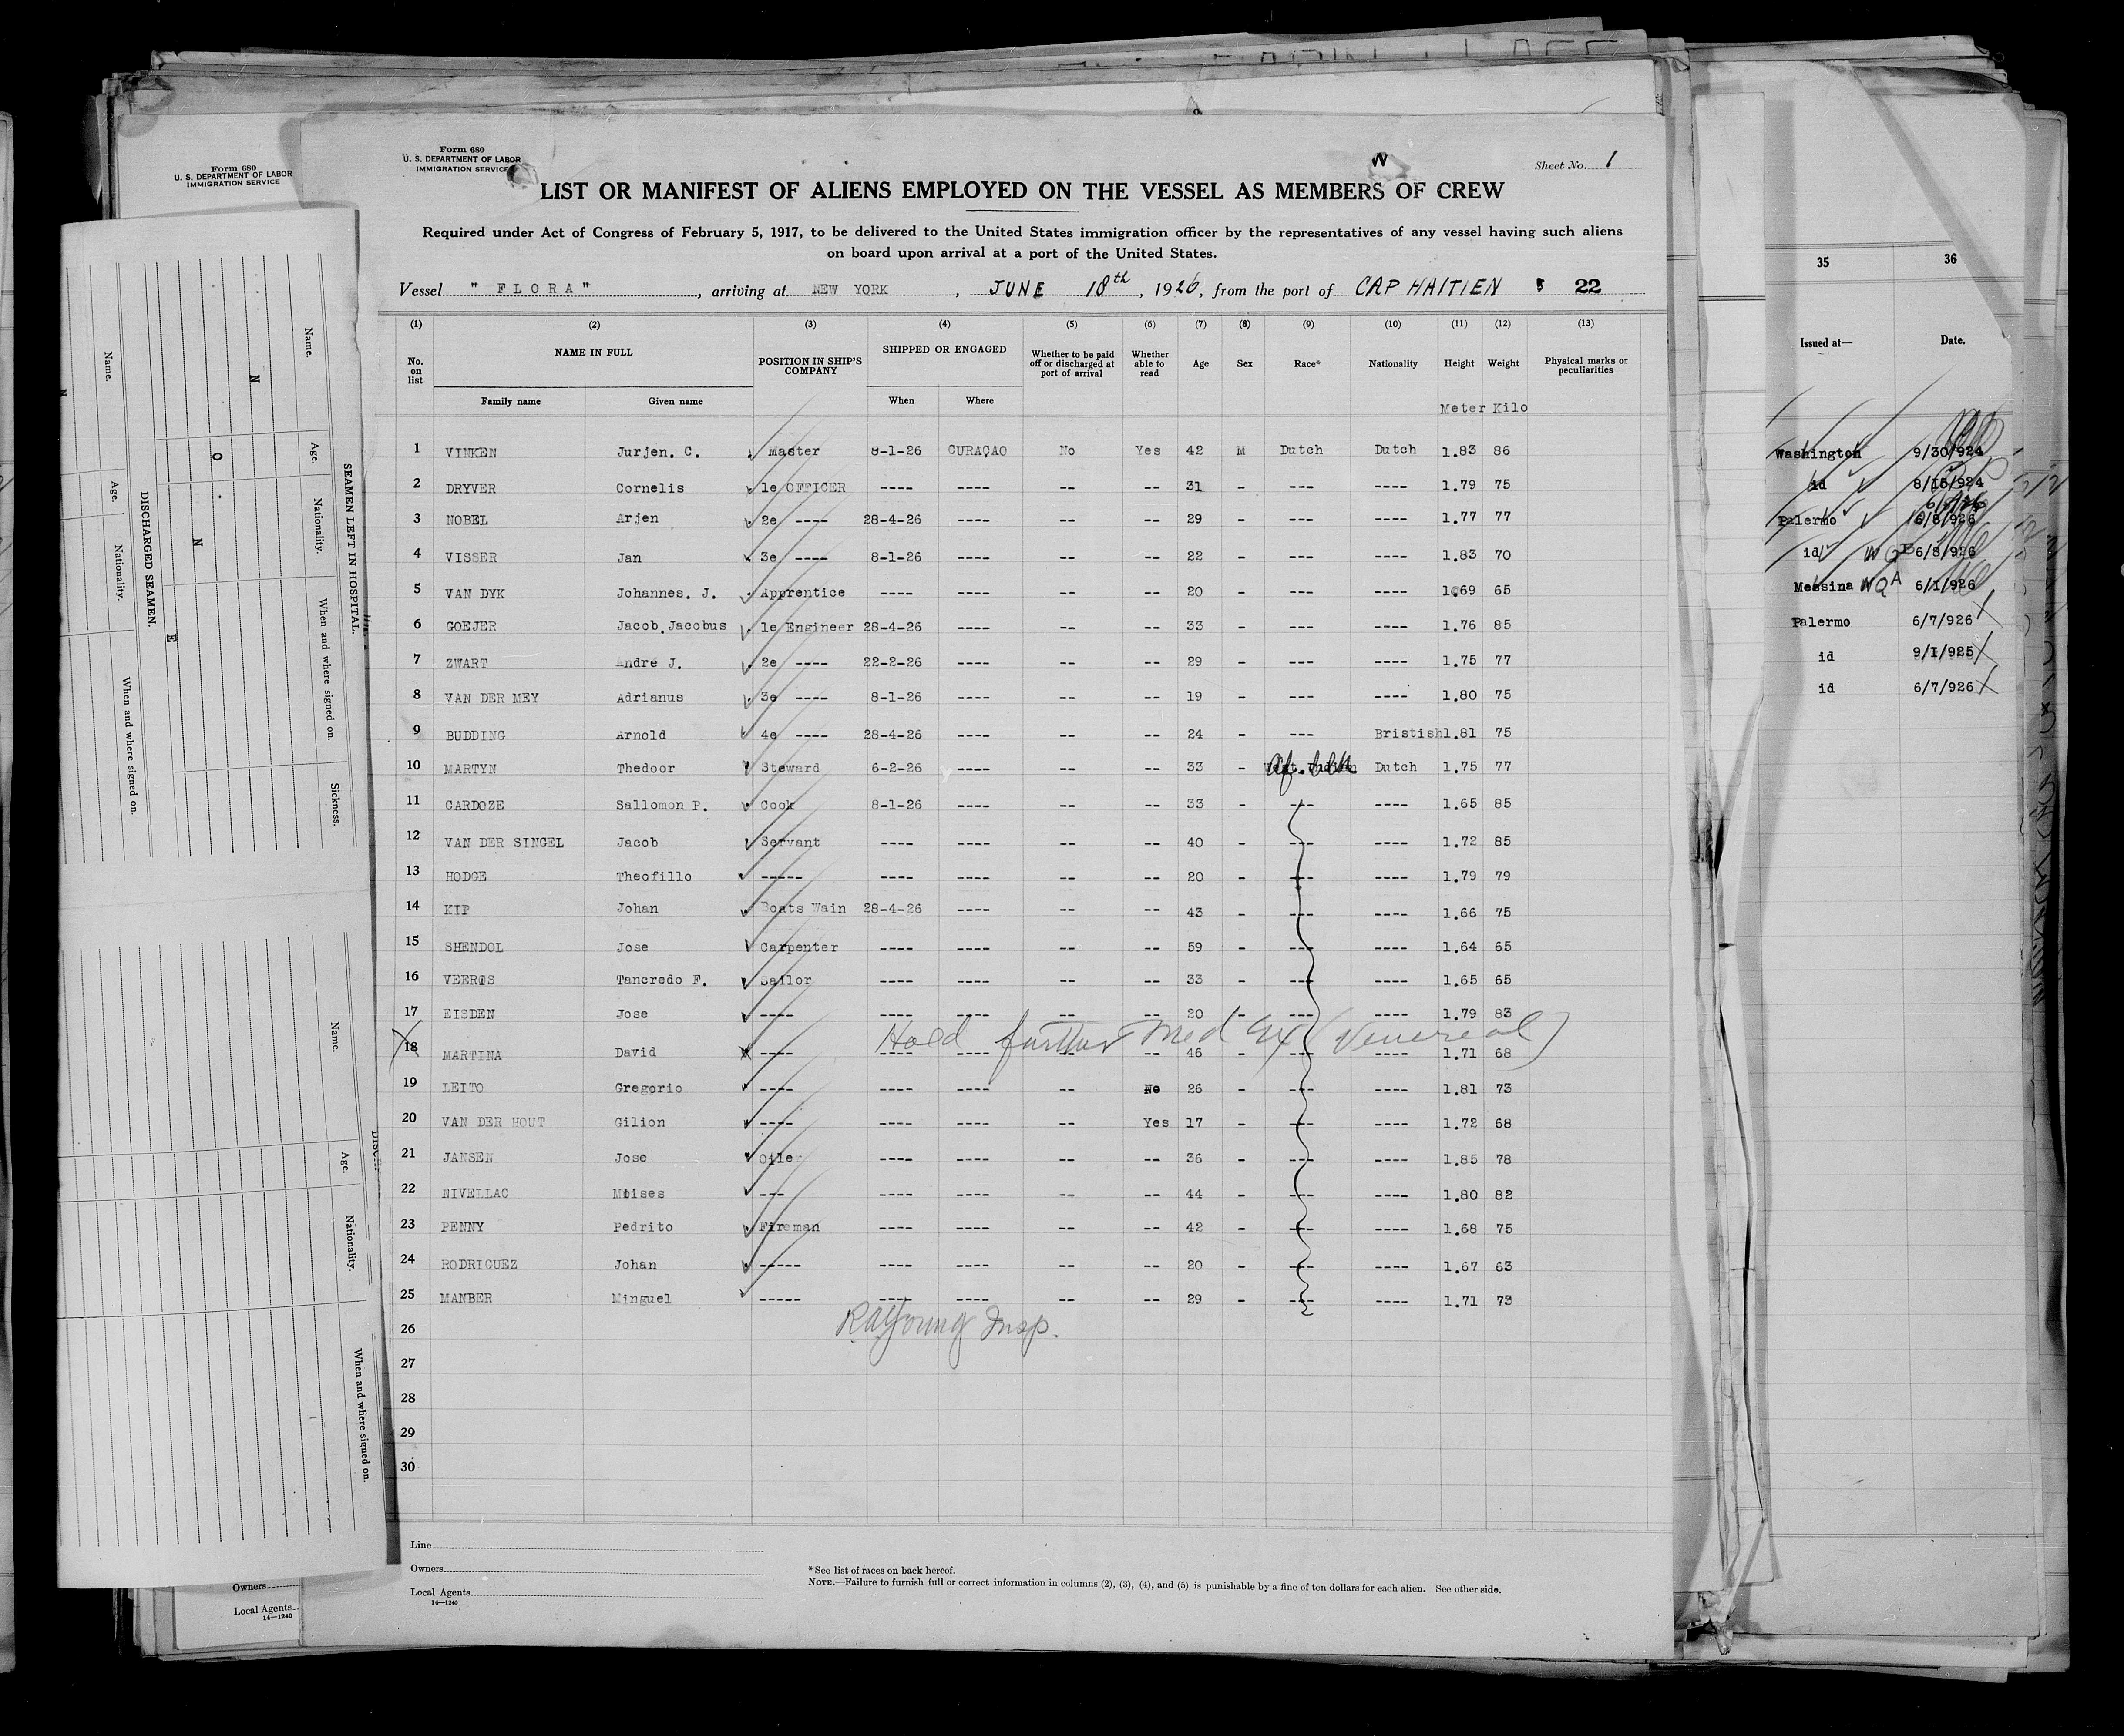 Form 680
U. S. DEPARTMENT OF LABOR
IMMIGRATION SERVICE
Form 680
U. S. DEPARTMENT OF LABOR
IMMIGRATION SERVICE
Sheet No. 1
LIST OR MANIFEST OF ALIENS EMPLOYED ON THE VESSEL AS MEMBERS OF CREW
Required under Act of Congress of February 5, 1917, to be delivered to the United States immigration officer by the representatives of any vessel having such aliens
on board upon arrival at a port of the United States.
Vessel " FLORA" , arriving at NEW YORK , JUNE 18th , 1926, from the port of CAP HAITIEN 22
(1) (2) (3) (4) (5) (6) (7) (8) (9) (10) (11) (12) (13)
No. on list NAME IN FULL POSITION IN SHIP'S COMPANY SHIPPED OR ENGAGED Whether to be paid off or discharged at port of arrival Whether able to read Age Sex Race* Nationality Height Weight Physical marks or peculiarities
Family name Given name When Where Meter Kilo
1 VINKEN Jurjen. C. Master 8-1-26 CURAÇAO No Yes 42 M Dutch Dutch 1.83 86
2 DRYVER Cornelis 1e OFFICER ---- ---- -- -- 31 - --- ---- 1.79 75
3 NOBEL Arjen 2e ---- 28-4-26 ---- -- -- 29 - --- ---- 1.77 77
4 VISSER Jan 3e ---- 8-1-26 ---- -- -- 22 - --- ---- 1.83 70
5 VAN DYK Johannes. J. Apprentice ---- ---- -- -- 20 - --- ---- 1.69 65
6 GOEJER Jacob Jacobus 1e Engineer 28-4-26 ---- -- -- 33 - --- ---- 1.76 85
7 ZWART Andre J. 2e ---- 22-2-26 ---- -- -- 29 - --- ---- 1.75 77
8 VAN DER MEY Adrianus 3e ---- 8-1-26 ---- -- -- 19 - --- ---- 1.80 75
9 BUDDING Arnold 4e ---- 28-4-26 ---- -- -- 24 - --- Bristish 1.81 75
10 MARTYN Thedoor Steward 6-2-26 ---- -- -- 33 - Af. blk Dutch 1.75 77
11 CARDOZE Sallomon P. Cook 8-1-26 ---- -- -- 33 - --- ---- 1.65 85
12 VAN DER SINGEL Jacob Servant ---- ---- -- -- 40 - --- ---- 1.72 85
13 HODGE Theofillo ----- ---- ---- -- -- 20 - --- ---- 1.79 79
14 KIP Johan Boats Wain 28-4-26 ---- -- -- 43 - --- ---- 1.66 75
15 SHENDOL Jose Carpenter ---- ---- -- -- 59 - --- ---- 1.64 65
16 VEERIS Tancredo F. Sailor ---- ---- -- -- 33 - --- ---- 1.65 65
17 EISDEN Jose ---- ---- ---- -- -- 20 - --- ---- 1.79 83
Hold further Med Ex (Venereal)
18 MARTINA David ---- ---- ---- -- -- 46 - --- ---- 1.71 68
19 LEITO Gregorio ---- ---- ---- -- No 26 - --- ---- 1.81 73
20 VAN DER HOUT Gilion ---- ---- ---- -- Yes 17 - --- ---- 1.72 68
21 JANSEN Jose Oiler ---- ---- -- -- 36 - --- ---- 1.85 78
22 NIVELLAC Moises --- ---- ---- -- -- 44 - --- ---- 1.80 82
23 PENNY Pedrito Fireman ---- ---- -- -- 42 - --- ---- 1.68 75
24 RODRIGUEZ Johan ----- ---- ---- -- -- 20 - --- ---- 1.67 63
25 MANBER Minguel ----- ---- ---- -- -- 29 - --- ---- 1.71 73
RAYoung Insp.
26
27
28
29
30
Line
Owners
Local Agents
14—1240
* See list of races on back hereof.
NOTE.—Failure to furnish full or correct information in columns (2), (3), (4), and (5) is punishable by a fine of ten dollars for each alien. See other side.
Owners
Local Agents
14—1240
SEAMEN LEFT IN HOSPITAL.
Name. Age. Nationality. When and where signed on. Sickness.
N O N E
DISCHARGED SEAMEN.
Name. Age. Nationality. When and where signed on.
Name. Age. Nationality. When and where signed on.
35 36
Issued at— Date.
Washington 9/30/924
id 8/15/924
Palermo 6/8/926
id 6/8/926
Messina 6/1/926
Palermo 6/7/926
id 9/1/925
id 6/7/926